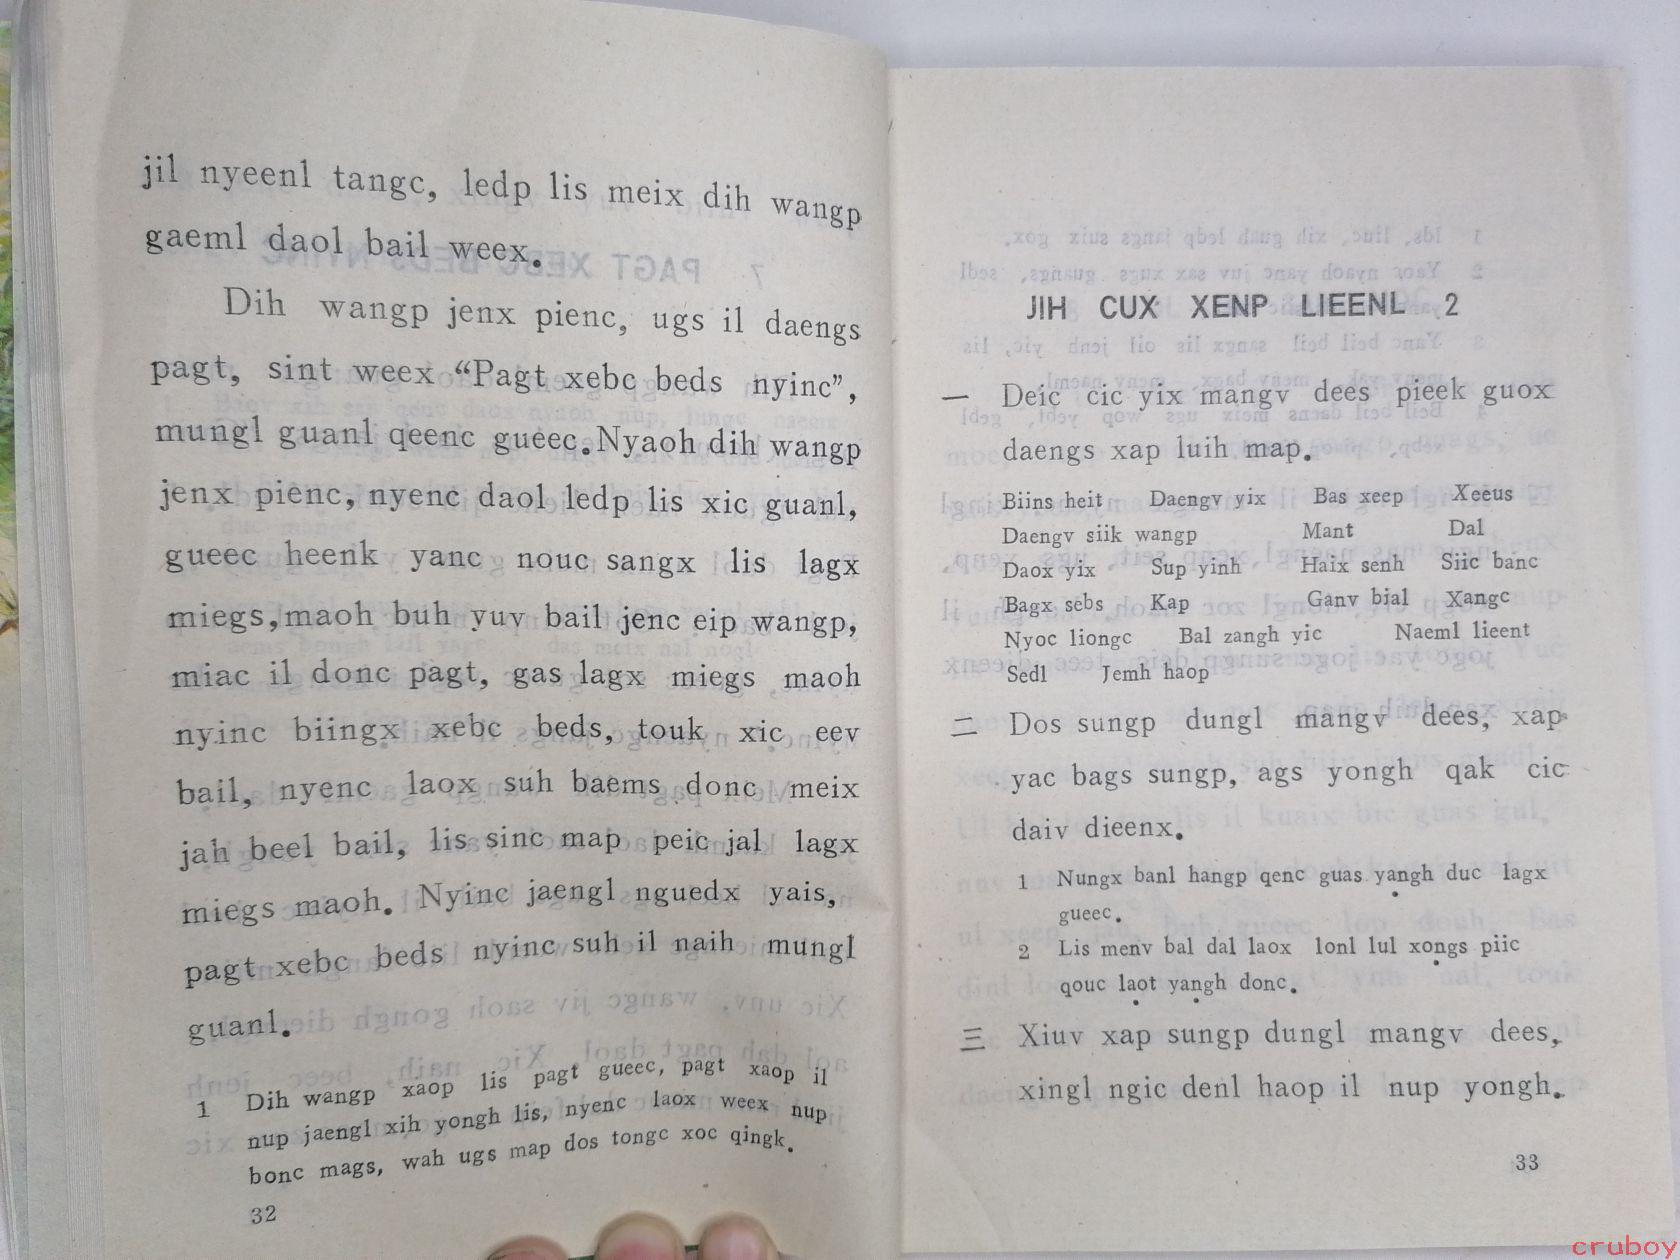 jil nyeenl tangc, ledp lis meix dih wangp
gaeml daol bail weex.
Dih wangp jenx pienc, ugs il daengs
pagt, sint weex “Pagt xebc beds nyinc”,
mungl guanl qeenc gueec. Nyaoh dih wangp
jenx pienc, nyenc daol ledp lis xic guanl,
gueec heenk yanc nouc sangx lis lagx
miegs, maoh buh yuv bail jenc eip wangp,
miac il donc pagt, gas lagx miegs maoh
nyinc biingx xebc beds, touk xic eev
bail, nyenc laox suh baems donc meix
jah beel bail, lis sinc map peic jal lagx
miegs maoh. Nyinc jaengl nguedx yais,
pagt xebc beds nyinc suh il naih mungl
guanl.
1 Dih wangp xaop lis pagt gueec, pagt xaop il
nup jaengl xih yongh lis, nyenc laox weex nup
bonc mags, wah ugs map dos tongc xoc qingk.
32
JIH CUX XENP LIEENL 2
一 Deic cic yix mangv dees pieek guox
daengs xap luih map.
Biins heit Daengv yix Bas xeep Xeeus
Daengv siik wangp Mant Dal
Daox yix Sup yinh Haix senh Siic banc
Bagx sebs Kap Ganv bial Xangc
Nyoc liongc Bal zangh yic Naeml lieent
Sedl Jemh haop
二 Dos sungp dungl mangv dees, xap
yac bags sungp, ags yongh qak cic
daiv dieenx.
1 Nungx banl hangp qenc guas yangh duc lagx
gueec.
2 Lis menv bal dal laox lonl lul xongs piic
qouc laot yangh donc.
三 Xiuv xap sungp dungl mangv dees,
xingl ngic denl haop il nup yongh.
33
cruboy